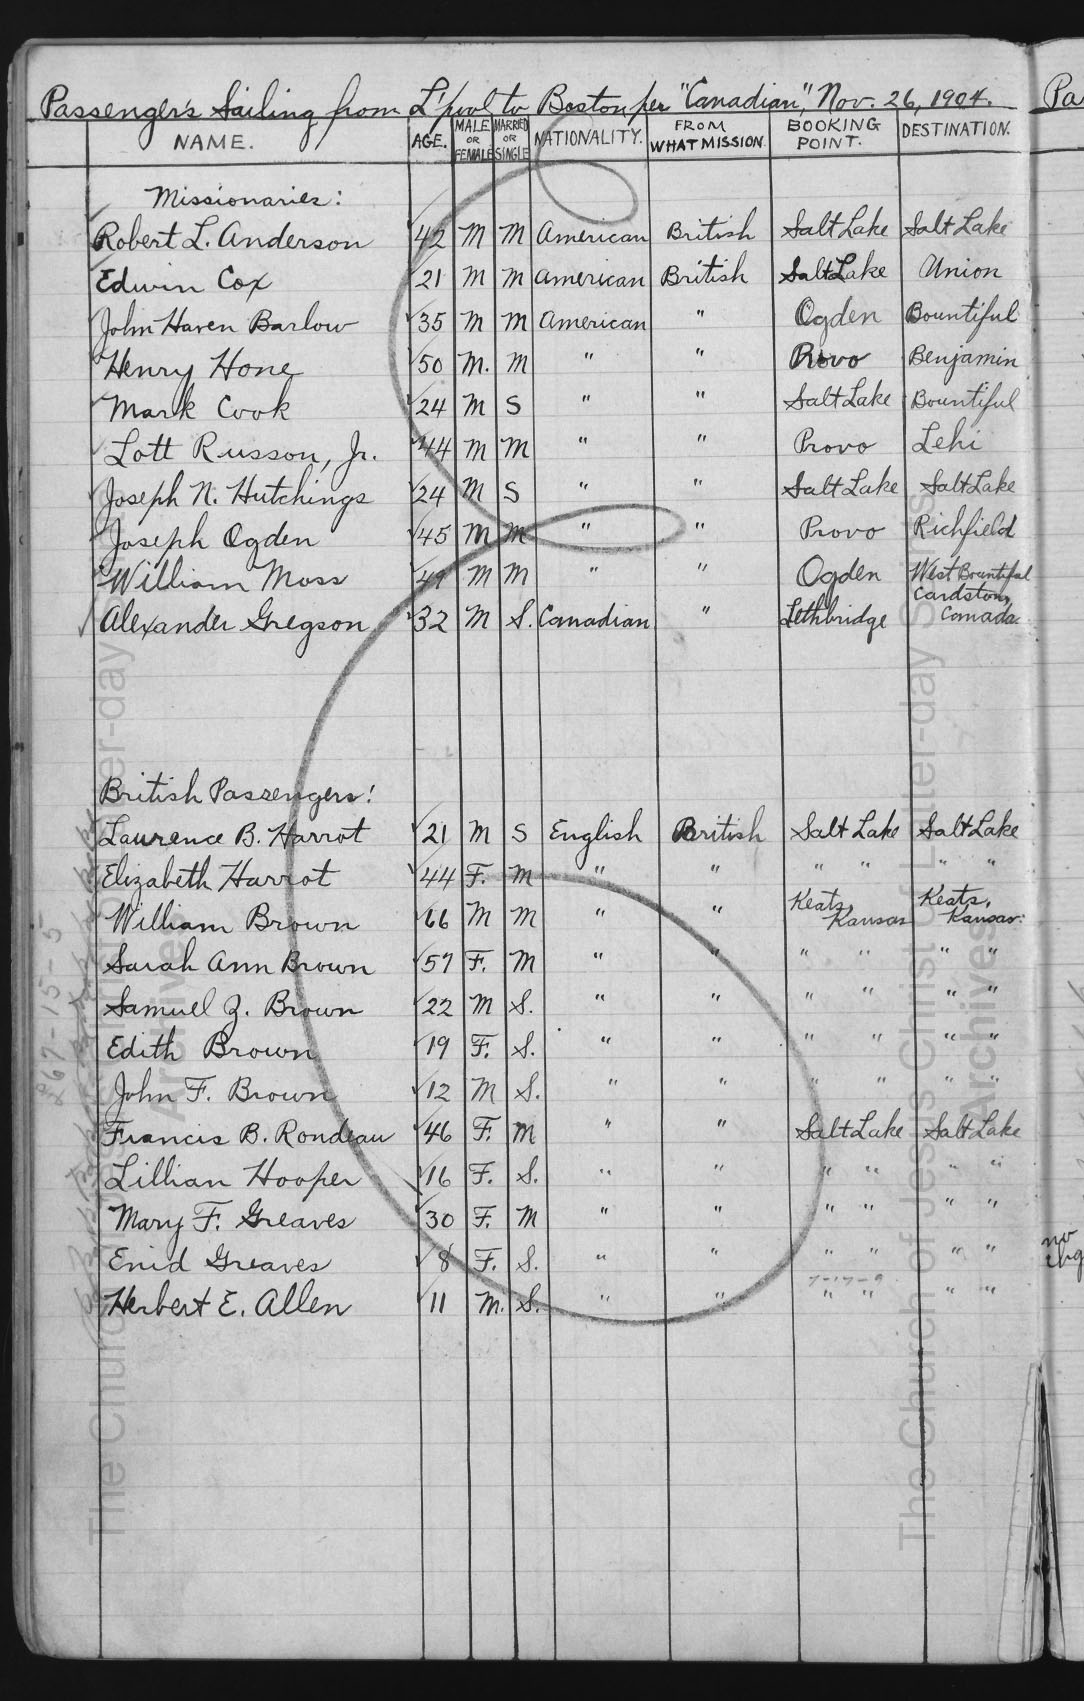 Passengers Sailing from L'pool to Boston per "Canadian," Nov. 26, 1904.
NAME. AGE. MALE OR FEMALE MARRIED OR SINGLE NATIONALITY. FROM WHAT MISSION. BOOKING POINT. DESTINATION.
Missionaries:
Robert L. Anderson 42 M M American British Salt Lake Salt Lake
Edwin Cox 21 M M American British Salt Lake Union
John Haven Barlow 35 M M American " Ogden Bountiful
Henry Hone 50 M. M " " Provo Benjamin
Mark Cook 24 M S " " Salt Lake Bountiful
Lott Russon, Jr. 44 M M " " Provo Lehi
Joseph N. Hutchings 24 M S " " Salt Lake Salt Lake
Joseph Ogden 45 M M " " Provo Richfield
William Moss 49 M M " " Ogden West Bountiful
Alexander Gregson 32 M S. Canadian " Lethbridge Cardston, Canada
British Passengers:
Laurence B. Harrot 21 M S English British Salt Lake Salt Lake
Elizabeth Harrot 44 F. M " " " " " "
William Brown 66 M M " " Keats, Kansas Keats, Kansas.
Sarah Ann Brown 57 F. M " " " " " "
Samuel J. Brown 22 M S. " " " " " "
Edith Brown 19 F. S. " " " " " "
John F. Brown 12 M S. " " " " " "
Francis B. Rondeau 46 F. M " " Salt Lake Salt Lake
Lillian Hooper 16 F. S. " " " " " "
Mary F. Greaves 30 F. M " " " " " "
Enid Greaves 8 F. S. " " " " " "
7-17-9
Herbert E. Allen 11 M. S. " " " " " "
867-15-5
Pa
no
The Church of Jesus Christ of Latter-day Saints
Archives
The Church of Jesus Christ of Latter-day Saints
Archives